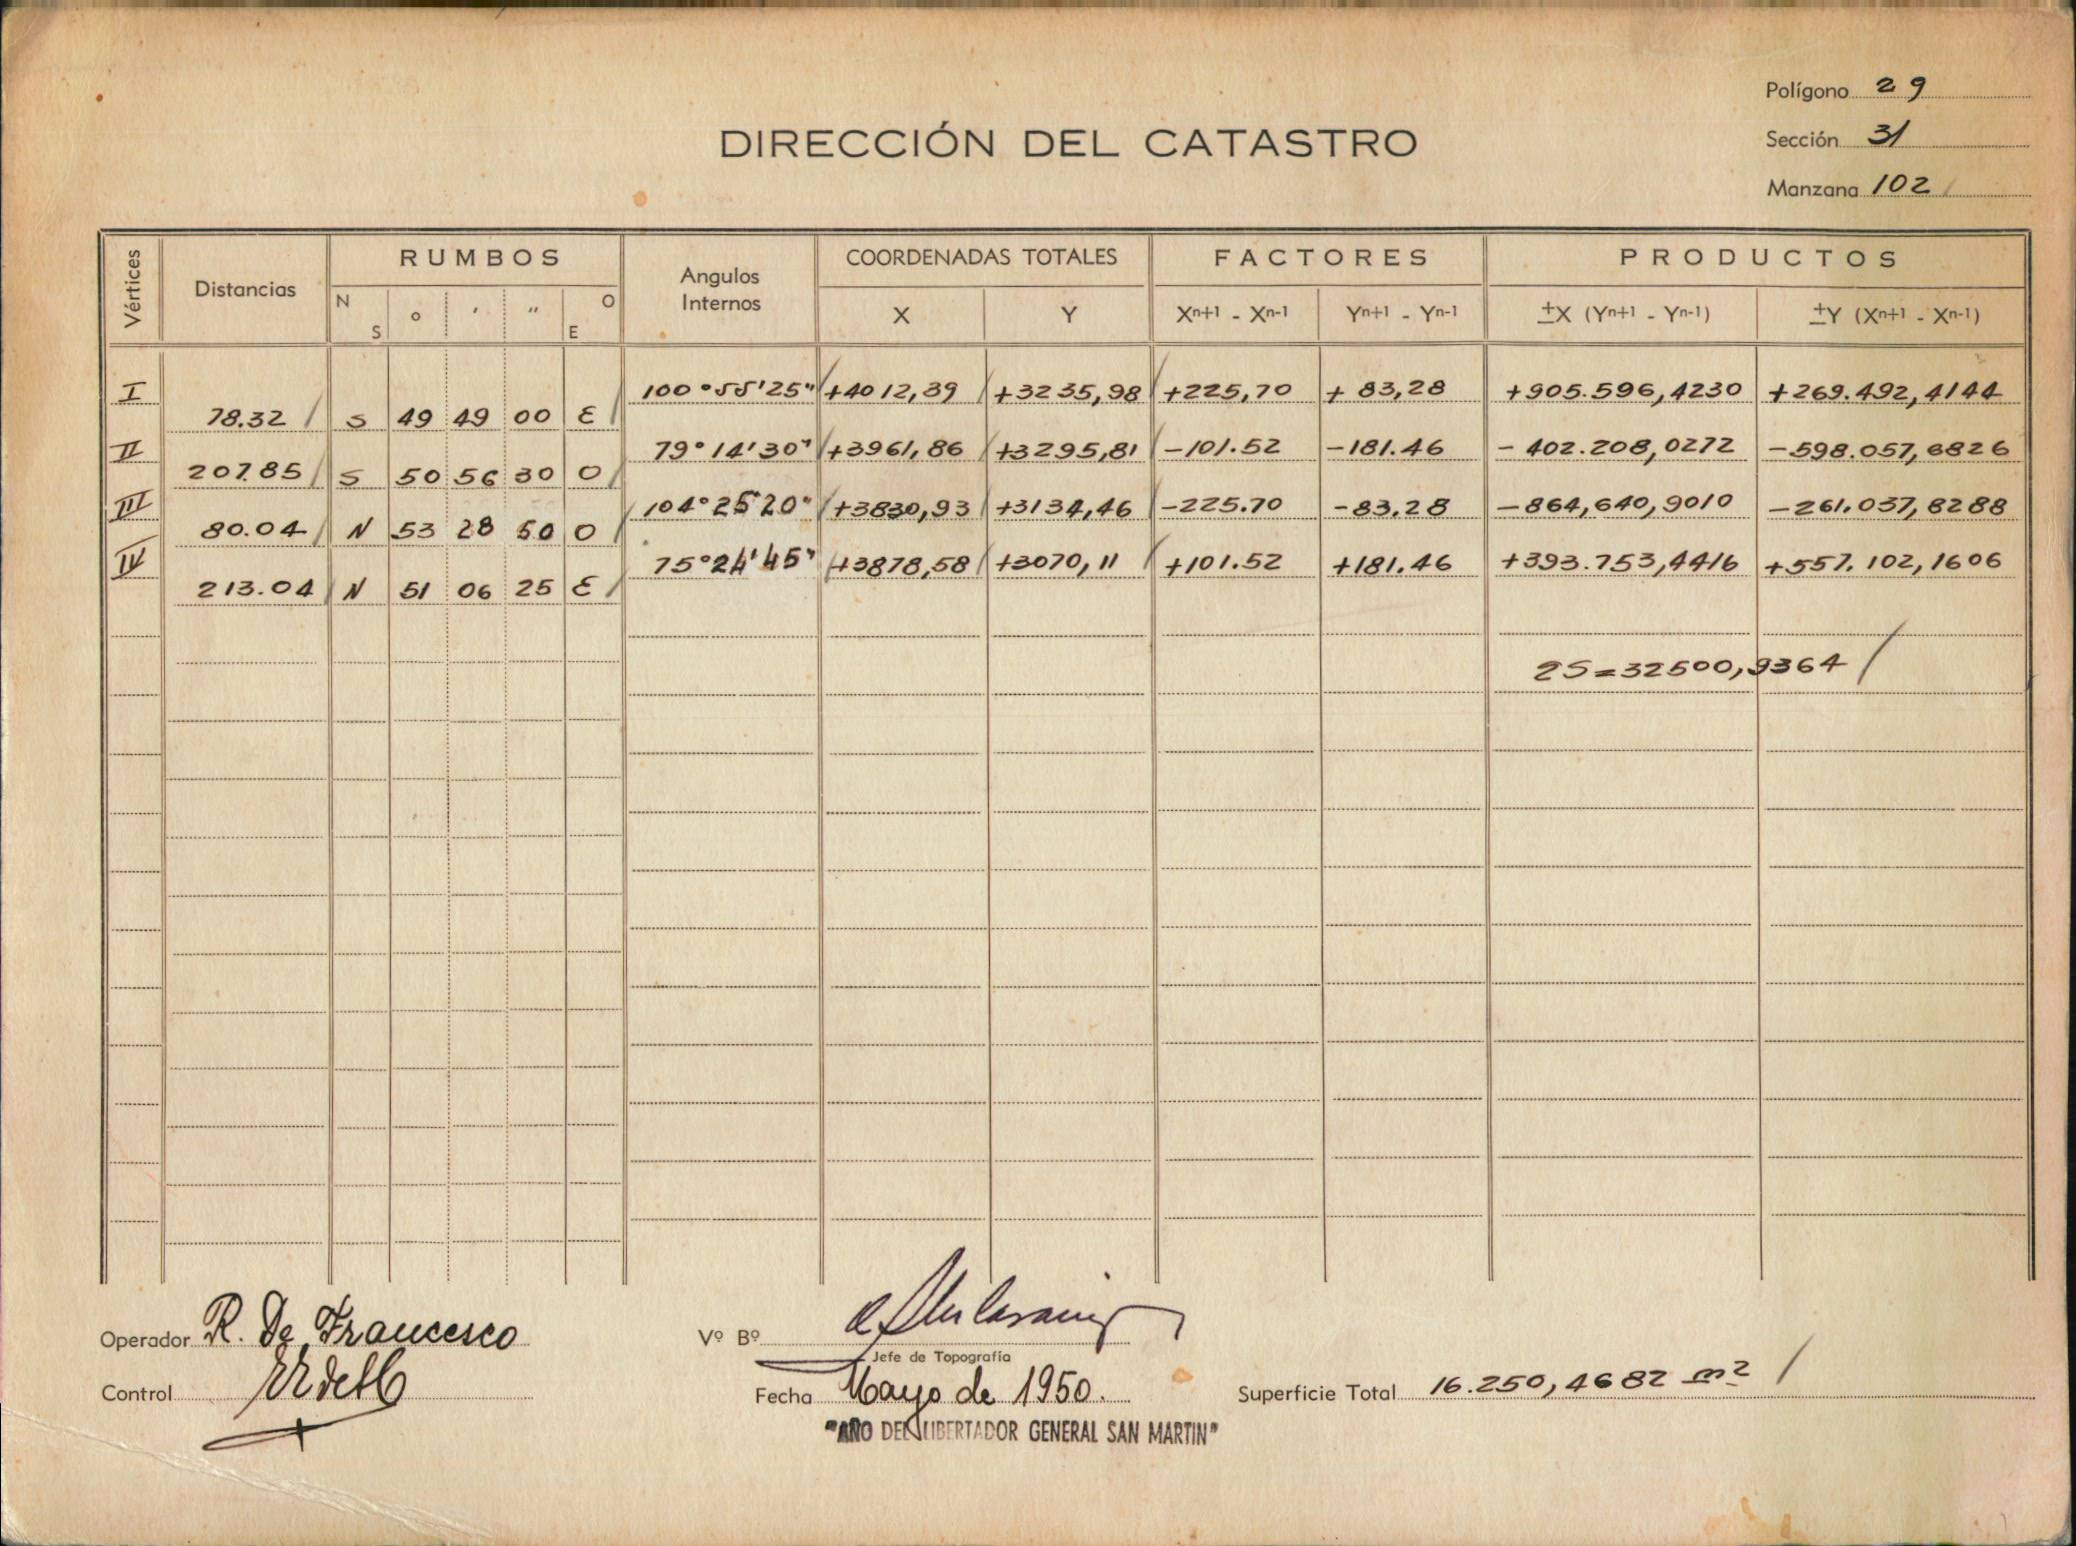 Polígono 29
Sección 31
Manzana 102
DIRECCIÓN DEL CATASTRO
Vértices Distancias RUMBOS Angulos Internos COORDENADAS TOTALES FACTORES PRODUCTOS
N S ° ' " O E X Y Xⁿ⁺¹ - Xⁿ⁻¹ Yⁿ⁺¹ - Yⁿ⁻¹ ±X (Yⁿ⁺¹ - Yⁿ⁻¹) ±Y (Xⁿ⁺¹ - Xⁿ⁻¹)
I 100°55'25" +4012,39 +3235,98 +225,70 + 83,28 +905.596,4230 +269.492,4144
78.32 S 49 49 00 E
II 79°14'30" +3961,86 +3295,81 -101.52 -181.46 - 402.208,0272 -598.057,6826
207.85 S 50 56 30 O
III 104°25'20" +3830,93 +3134,46 -225.70 -83.28 -864,640,9010 -261.037,8288
80.04 N 53 28 50 O
IV 75°24'45" +3878,58 +3070,11 +101.52 +181.46 +393.753,4416 +557.102,1606
213.04 N 51 06 25 E
2S=32500,9364
Operador R. De Francesco
Vº Bº
Jefe de Topografía
Control
Fecha Mayo de 1950.
Superficie Total 16.250,4682 m²
"AÑO DEL LIBERTADOR GENERAL SAN MARTIN"